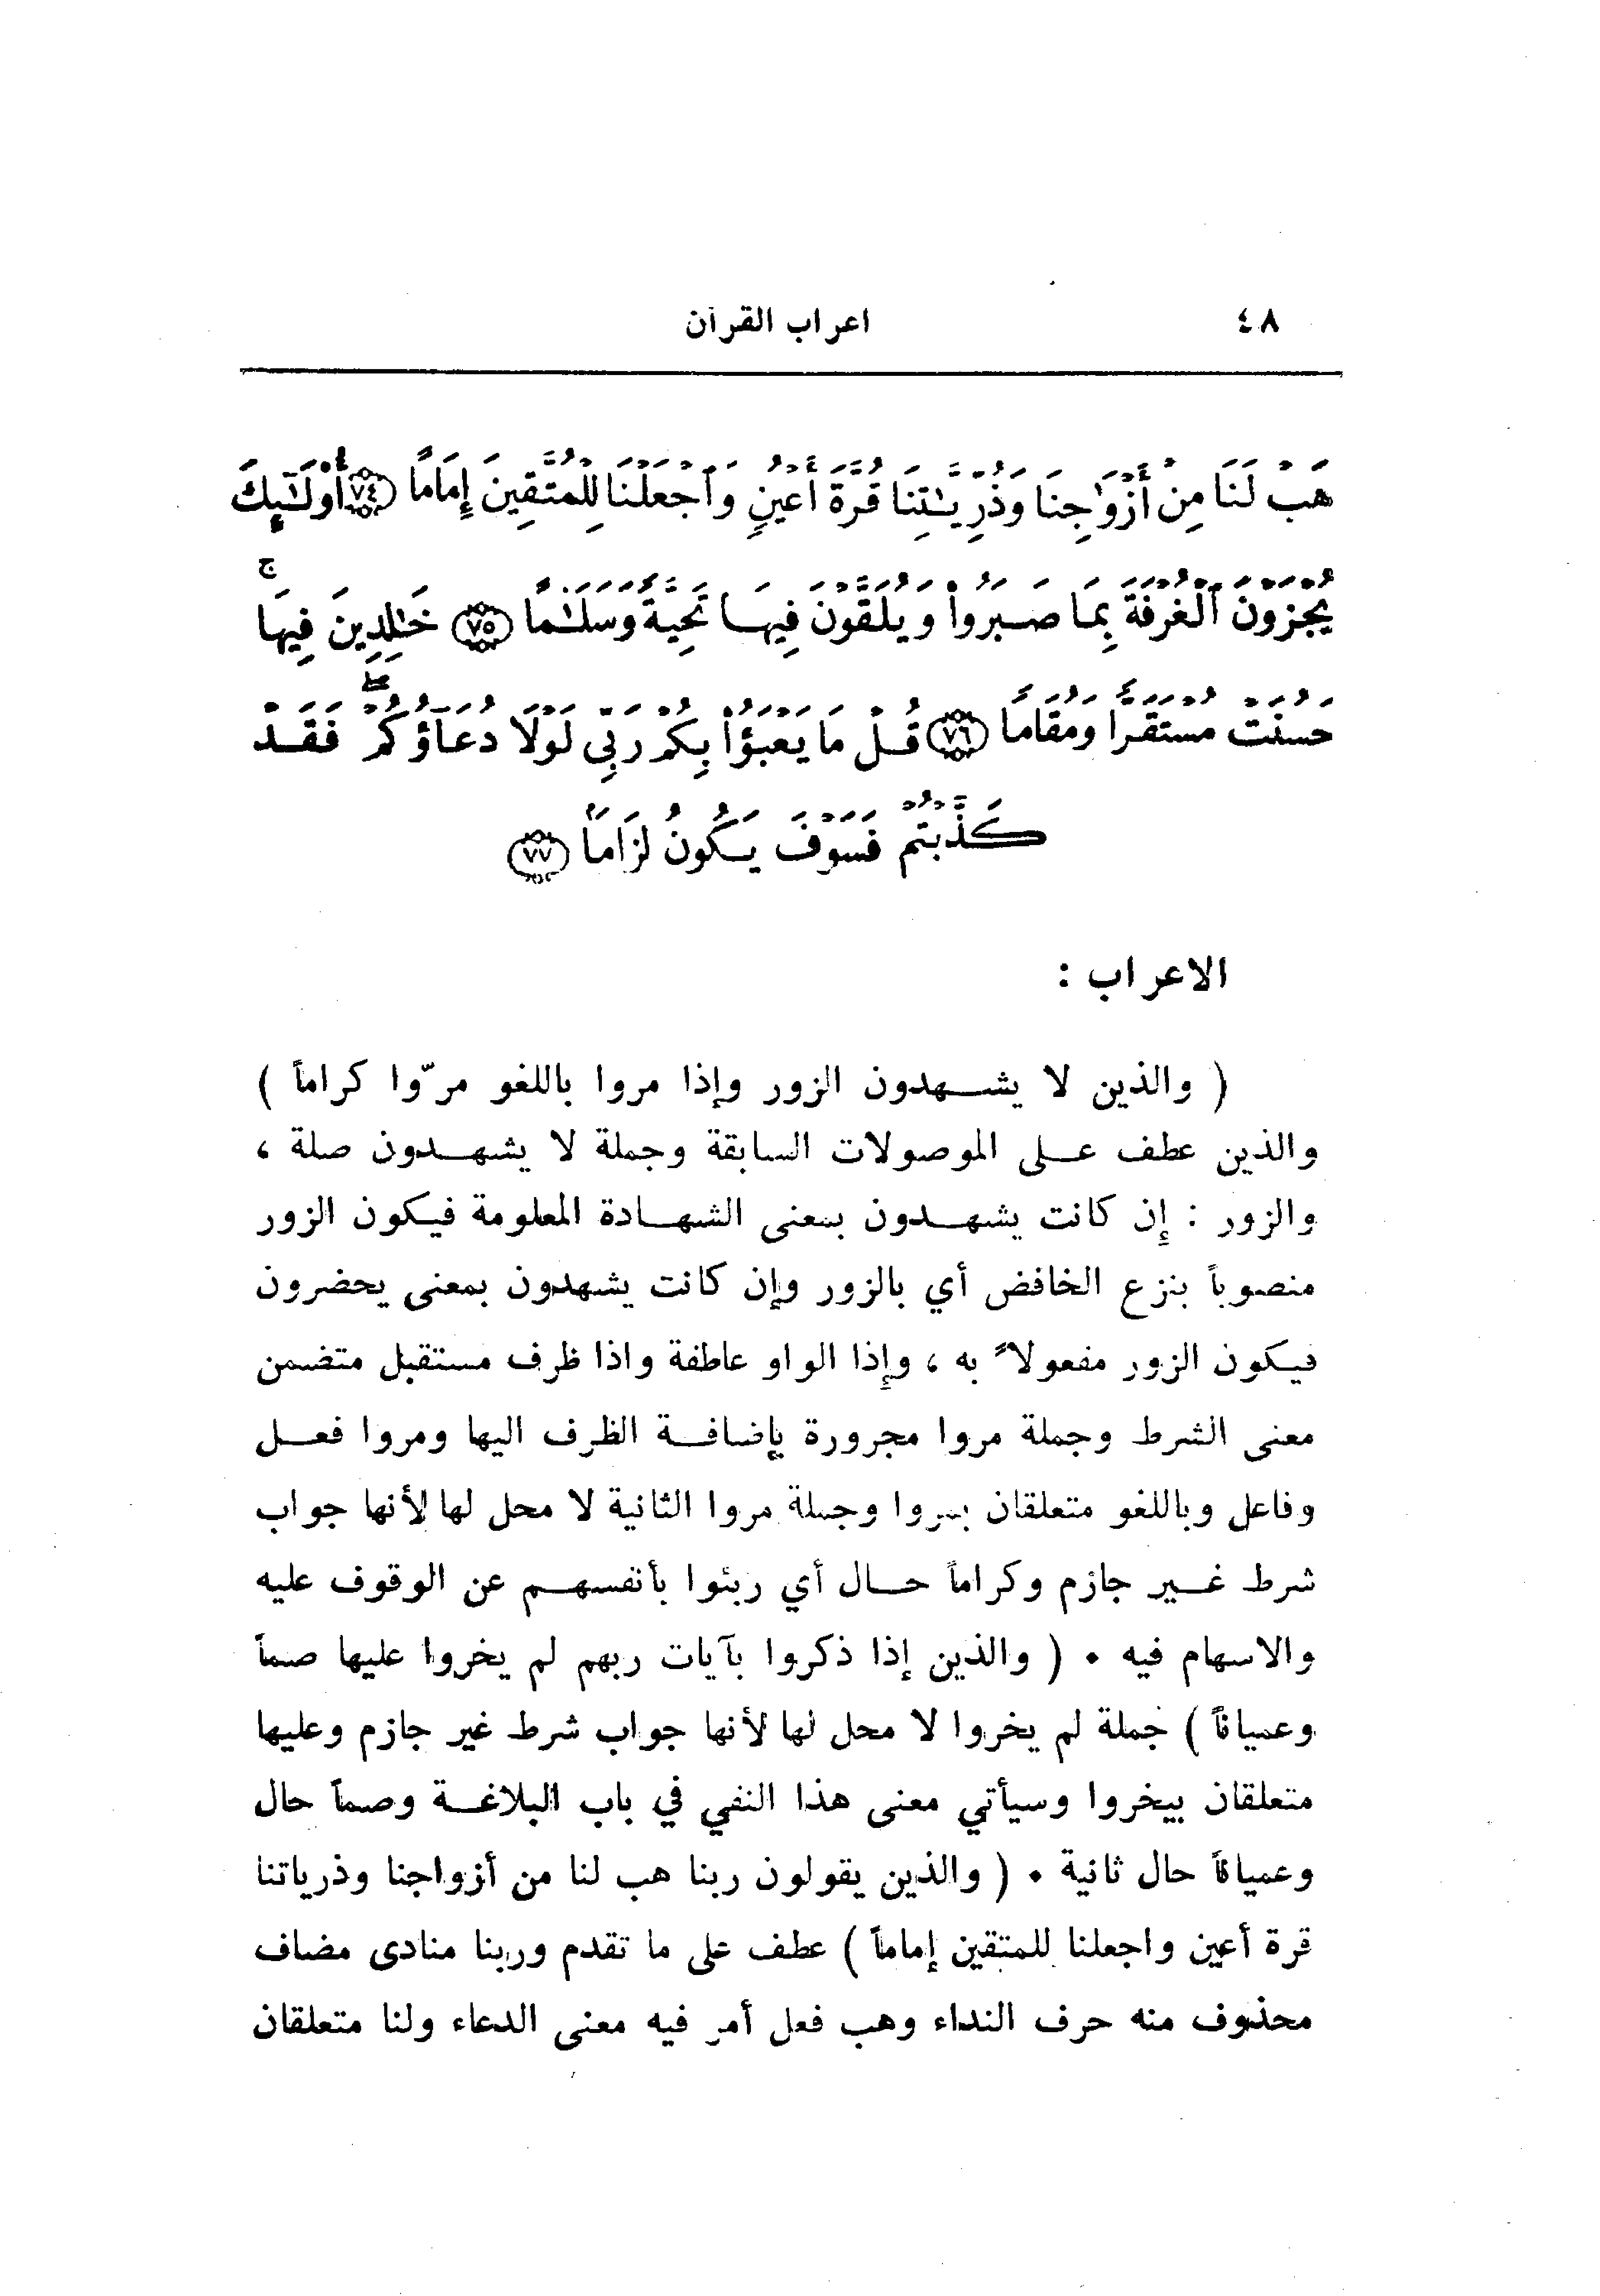 ٤٨ اعراب القرآن
هَبْ لَنَا مِنْ أَزْوَٰجِنَا وَذُرِّيَّـٰتِنَا قُرَّةَ أَعْيُنٍ وَٱجْعَلْنَا لِلْمُتَّقِينَ إِمَامًا ٧٤ أُوْلَـٰٓئِكَ
يُجْزَوْنَ ٱلْغُرْفَةَ بِمَا صَبَرُواْ وَيُلَقَّوْنَ فِيهَا تَحِيَّةً وَسَلَـٰمًا ٧٥ خَـٰلِدِينَ فِيهَاۚ
حَسُنَتْ مُسْتَقَرًّا وَمُقَامًا ٧٦ قُلْ مَا يَعْبَؤُاْ بِكُمْ رَبِّى لَوْلَا دُعَآؤُكُمْۖ فَقَدْ
كَذَّبْتُمْ فَسَوْفَ يَكُونُ لِزَامًا ٧٧
الاعراب :
( والذين لا يشهدون الزور وإذا مروا باللغو مرّوا كراماً )
والذين عطف على الموصولات السابقة وجملة لا يشهدون صلة ،
والزور : إن كانت يشهدون بمعنى الشهادة المعلومة فيكون الزور
منصوباً بنزع الخافض أي بالزور وإن كانت يشهدون بمعنى يحضرون
فيكون الزور مفعولاً به ، وإذا الواو عاطفة واذا ظرف مستقبل متضمن
معنى الشرط وجملة مروا مجرورة بإضافة الظرف اليها ومروا فعل
وفاعل وباللغو متعلقان بمروا وجملة مروا الثانية لا محل لها لأنها جواب
شرط غير جازم وكراماً حال أي ربئوا بأنفسهم عن الوقوف عليه
والاسهام فيه . ( والذين إذا ذكروا بآيات ربهم لم يخروا عليها صماً
وعمياناً ) جملة لم يخروا لا محل لها لأنها جواب شرط غير جازم وعليها
متعلقان بيخروا وسيأتي معنى هذا النفي في باب البلاغة وصماً حال
وعمياناً حال ثانية . ( والذين يقولون ربنا هب لنا من أزواجنا وذرياتنا
قرة أعين واجعلنا للمتقين إماماً ) عطف على ما تقدم وربنا منادى مضاف
محذوف منه حرف النداء وهب فعل أمر فيه معنى الدعاء ولنا متعلقان